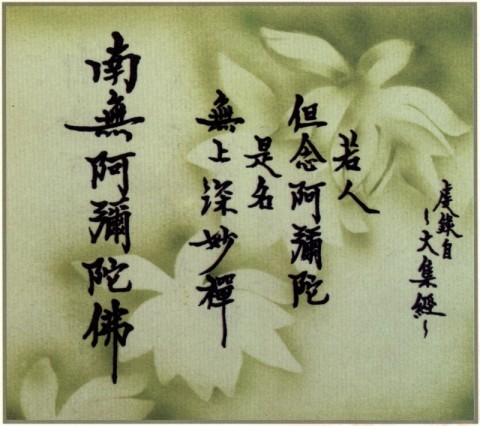 虔錄自
~大集經~
若人
但念阿彌陀
是名
無上深妙禪
南無阿彌陀佛